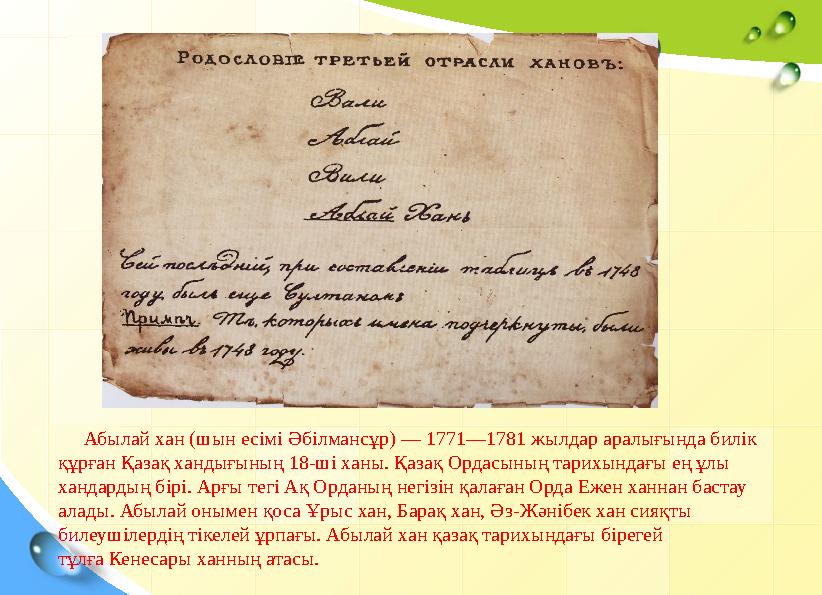 Родословіе третьей отрасли хановъ:
Вали
Аблай
Вили
Аблай Ханъ
Сей послѣдній, при составленіи таблицъ въ 1748
году, былъ еще Султаномъ
Примѣч. Тѣ, которыхъ имена подчеркнуты, были
живы въ 1748 году.
Абылай хан (шын есімі Әбілмансұр) — 1771—1781 жылдар аралығында билік
құрған Қазақ хандығының 18-ші ханы. Қазақ Ордасының тарихындағы ең ұлы
хандардың бірі. Арғы тегі Ақ Орданың негізін қалаған Орда Ежен ханнан бастау
алады. Абылай онымен қоса Ұрыс хан, Барақ хан, Әз-Жәнібек хан сияқты
билеушілердің тікелей ұрпағы. Абылай хан қазақ тарихындағы бірегей
тұлға Кенесары ханның атасы.